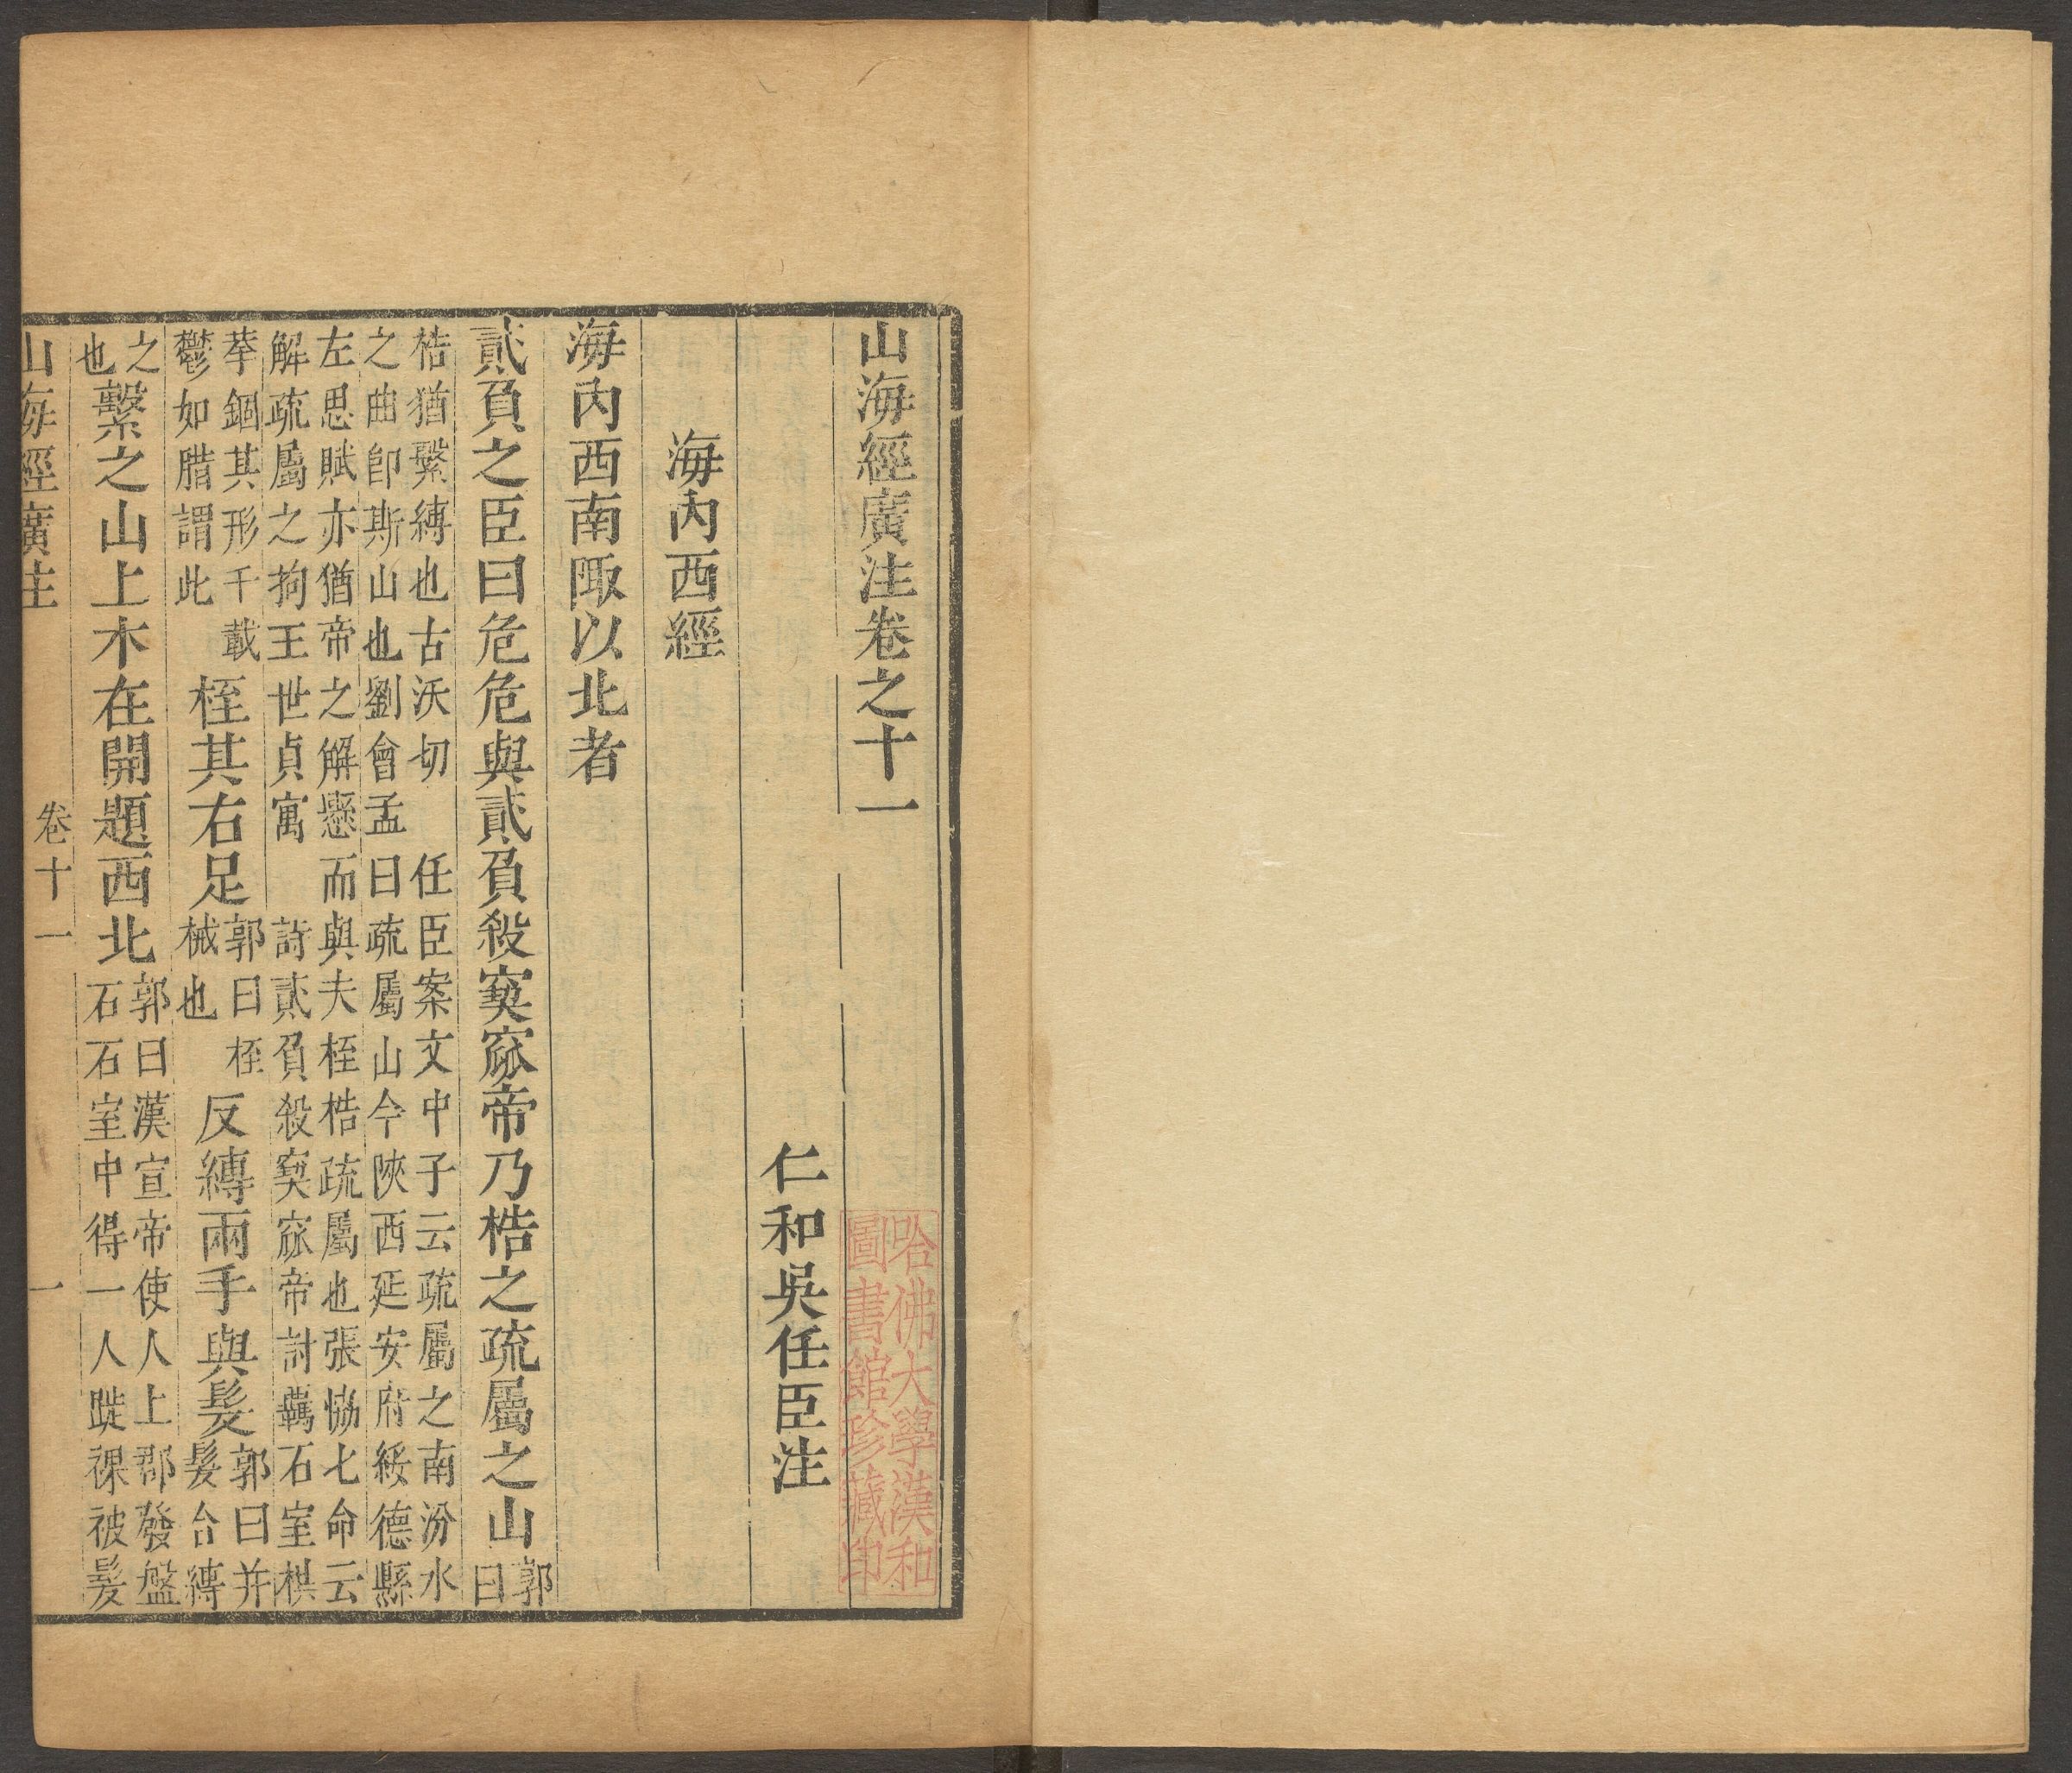 山海經廣注卷之十一
哈佛大學漢和
圖書館珍藏印
仁和吳任臣注
海内西經
海内西南陬以北者
貳負之臣曰危危與貳負殺窫窳帝乃梏之疏屬之山郭曰
梏猶繫縛也古沃切 任臣案文中子云疏屬之南汾水
之曲卽斯山也劉會孟曰疏屬山今陝西延安府綏德縣
左思賦亦猶帝之解懸而與夫桎梏疏屬也張協七命云
解疏屬之拘王世貞寓 詩貳負殺窫窳帝討羈石室
錮其形千載
鬱如腊謂此
桎其右足
郭曰桎
械也
反縛兩手與髮
郭曰并
髮合縛
之
也
繫之山上木在開題西北
郭曰漢宣帝使人上郡發盤
石石室中得一人跣裸被髮
山海經廣注 卷十一 一